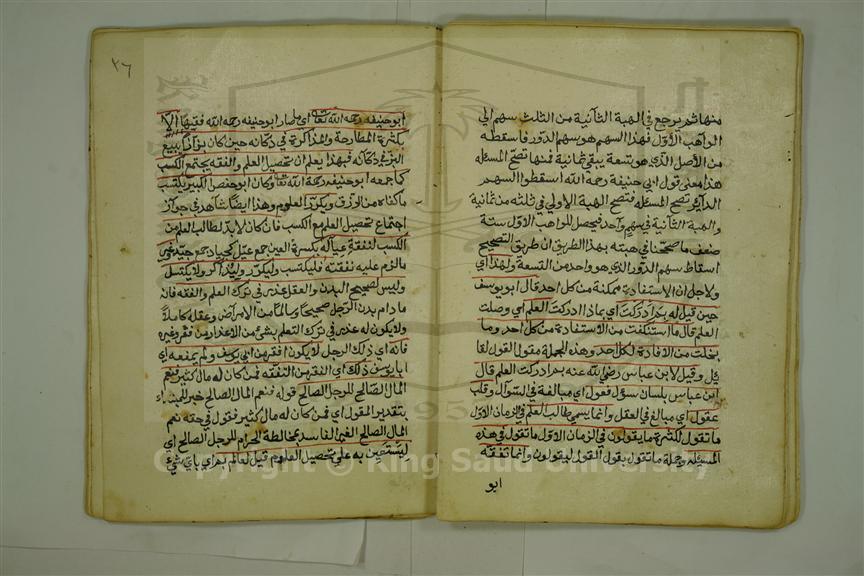 منها ثم يرجع في الهبة الثانية من الثلث سهم الى
الواهب الاول فهذا السهم هو سهم الدور فاسقطه
من الاصل الذي هو تسعة يبقى ثمانية فمنها تصح المسئلة
هذا معنى قول ابي حنيفة رحمه الله اسقطوا السهم
الدائر تصح المسئلة فتصح الهبة الاولى في ثلثه من ثمانية
والهبة الثانية في سهم واحد فيحصل للواهب الاول ستة
ضعف ما صححنا في هبته بهذا الطريق ان طريق التصحيح
اسقاط سهم الدور الذي هو واحد من التسعة ولهذا اي
ولاجل ان الاستفادة ممكنة من كل احد قال ابو يوسف
حين قيل له بم ادركت اي بماذا ادركت العلم اي وصلت
العلم قال ما استنكفت من الاستفادة من كل احد وما
بخلت من الافادة لكل احد وهذه الجملة مقول القول لقا
ئل وقيل لابن عباس رضي الله عنه بم ادركت العلم قال
ابن عباس بلسان سؤل فعول اي مبالغة في السؤال وقلب
عقول اي مبالغ في العقل وانما سمي طالب العلم في الزمان الاول
ما تقول لكثرة ما يقولون في الزمان الاول ما تقول في هذه
المسئلة وجملة ما تقول بقول القول ليقولون وانما تفقه
ابو
٣٦
ابو حنيفه رحمه الله تعالى اي صار ابو حنيفه رحمه الله فقيها الا
بكثرة المطارحة والمذاكرة في دكانه حين كان بزازا يبيع
البز في دكانه فبهذا يعلم ان تحصيل العلم والفقه يجتمع الكسب
كما جمعه ابو حنيفه رحمة الله تعالى وكان ابو حفص الكبير يكتسب
ما كفاه من الرزق ويكرر العلوم وهذا ايضا شاهد في جواز
اجتماع تحصيل العلم مع الكسب فان كان لابد لطالب العلم من
الكسب لنفقة عياله بكسرة العين جمع عيل كجياد جمع جيد غير
ما لزم عليه نفقته فليكتسب وليكرر وليذاكر ولا يكسل
وليس لصحيح البدن والعقل عذر في ترك العلم والفقه فانه
ما دام بدن الرجل صحيحا سالما من الامراض وعقله كاملا
ولا يكون له عذر في ترك التعلم بشئ من الاعذار من فقر وغيره
فانه اي ذلك الرجل لا يكون افقر من ابي يوسف ولم يمنعه اي
ابا يوسف ذلك اي الفقر من التفقه فمن كان له مال كثير فنعم
المال الصالح للرجل الصالح قوله فنعم المال الصالح خبر المبتداء
بتقدير المقول اي فمن كان له مال كثير فنقول في حقه نعم
المال الصالح الغير الفاسد بمخالطة الحرام للرجل الصالح اي
ليستعين به على تحصيل العلوم قيل لعالم بم اي باي شئ
Copyright © King Saud University